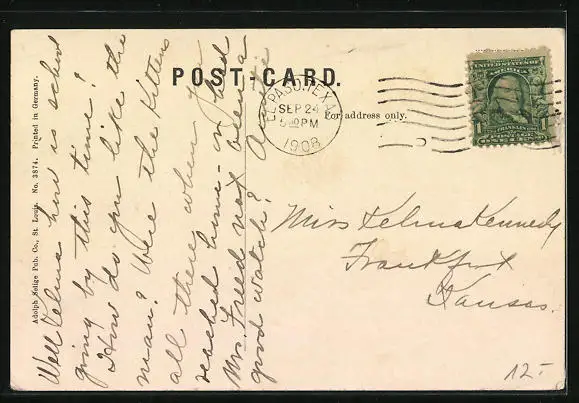 POST-CARD.
For address only.
EL PASO, TEXAS
SEP 24
5 PM
1908
UNITED STATES OF AMERICA
FRANKLIN
1
POSTAGE
ONE CENT
Well Velma how is school
going by this time?
How do you like the
man? Were the Kittens
all there when you
reached home - or had
Mr. Freed not been a
good watch? Augie
Miss Velma Kennedy
Frankfort
Kansas.
12.-
Adolph Selige Pub. Co., St. Louis. No. 3874. Printed in Germany.